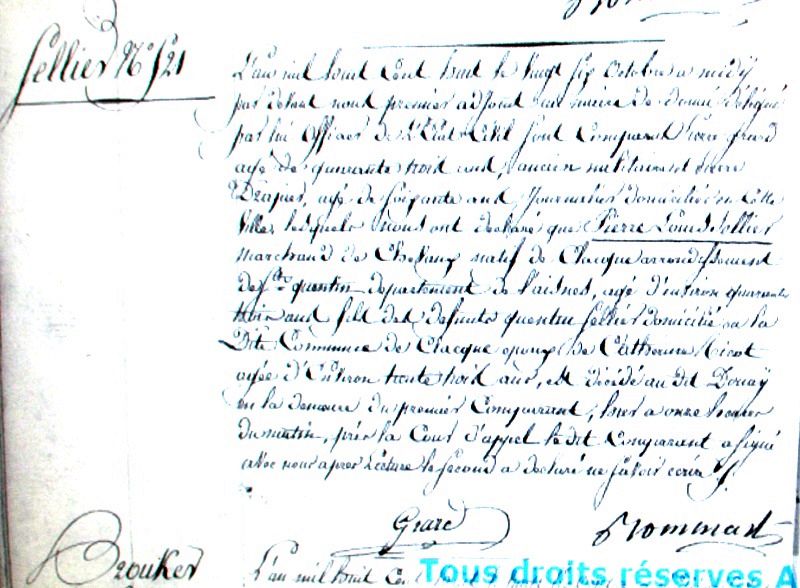 Sellier N° 521
L'an mil huit Cent huit le vingt six Octobre a midy
par devant nous premier adjoint au maire de douai délégué
par lui Officier de L'Etat Civil sont Comparut
agé de quarante trois ans, ancien militaire et
Drapier, agé de soixante ans, Journalier domiciliés en Cette
Ville, lesquels nous ont declaré que Pierre Louis Sellier
marchand de Chevaux natif de Clacque arrondissement
de st quentin departement de l'aisne, agé d'environ quarante
trois ans fils des defunts quentin Sellier domicilié a la
Dite Commune de Clacque epoux de Catherine
agée d'Environ trente trois ans, est décédé au dit Douay
en la demeure du premier Comparant, hier a onze heures
du matin, près la Cour d'appel le dit Comparant a signé
avec nous apres Lecture le second a declaré ne savoir ecrire
Grard
Brouker
L'an mil huit Cent
Tous droits réservés A